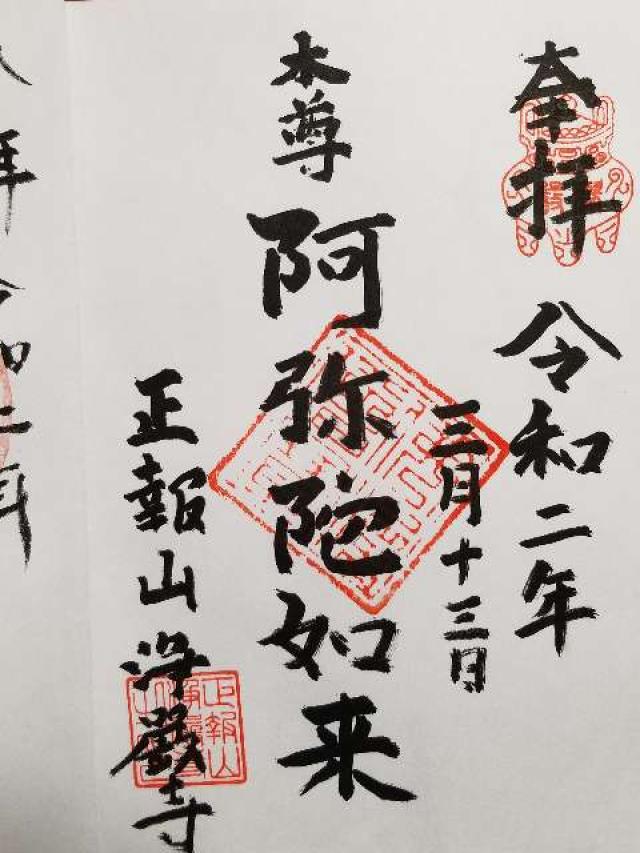 奉拝
令和二年
三月十三日
本尊
阿弥陀如来
正報山
浄嚴寺
正報山
拝
令和二年